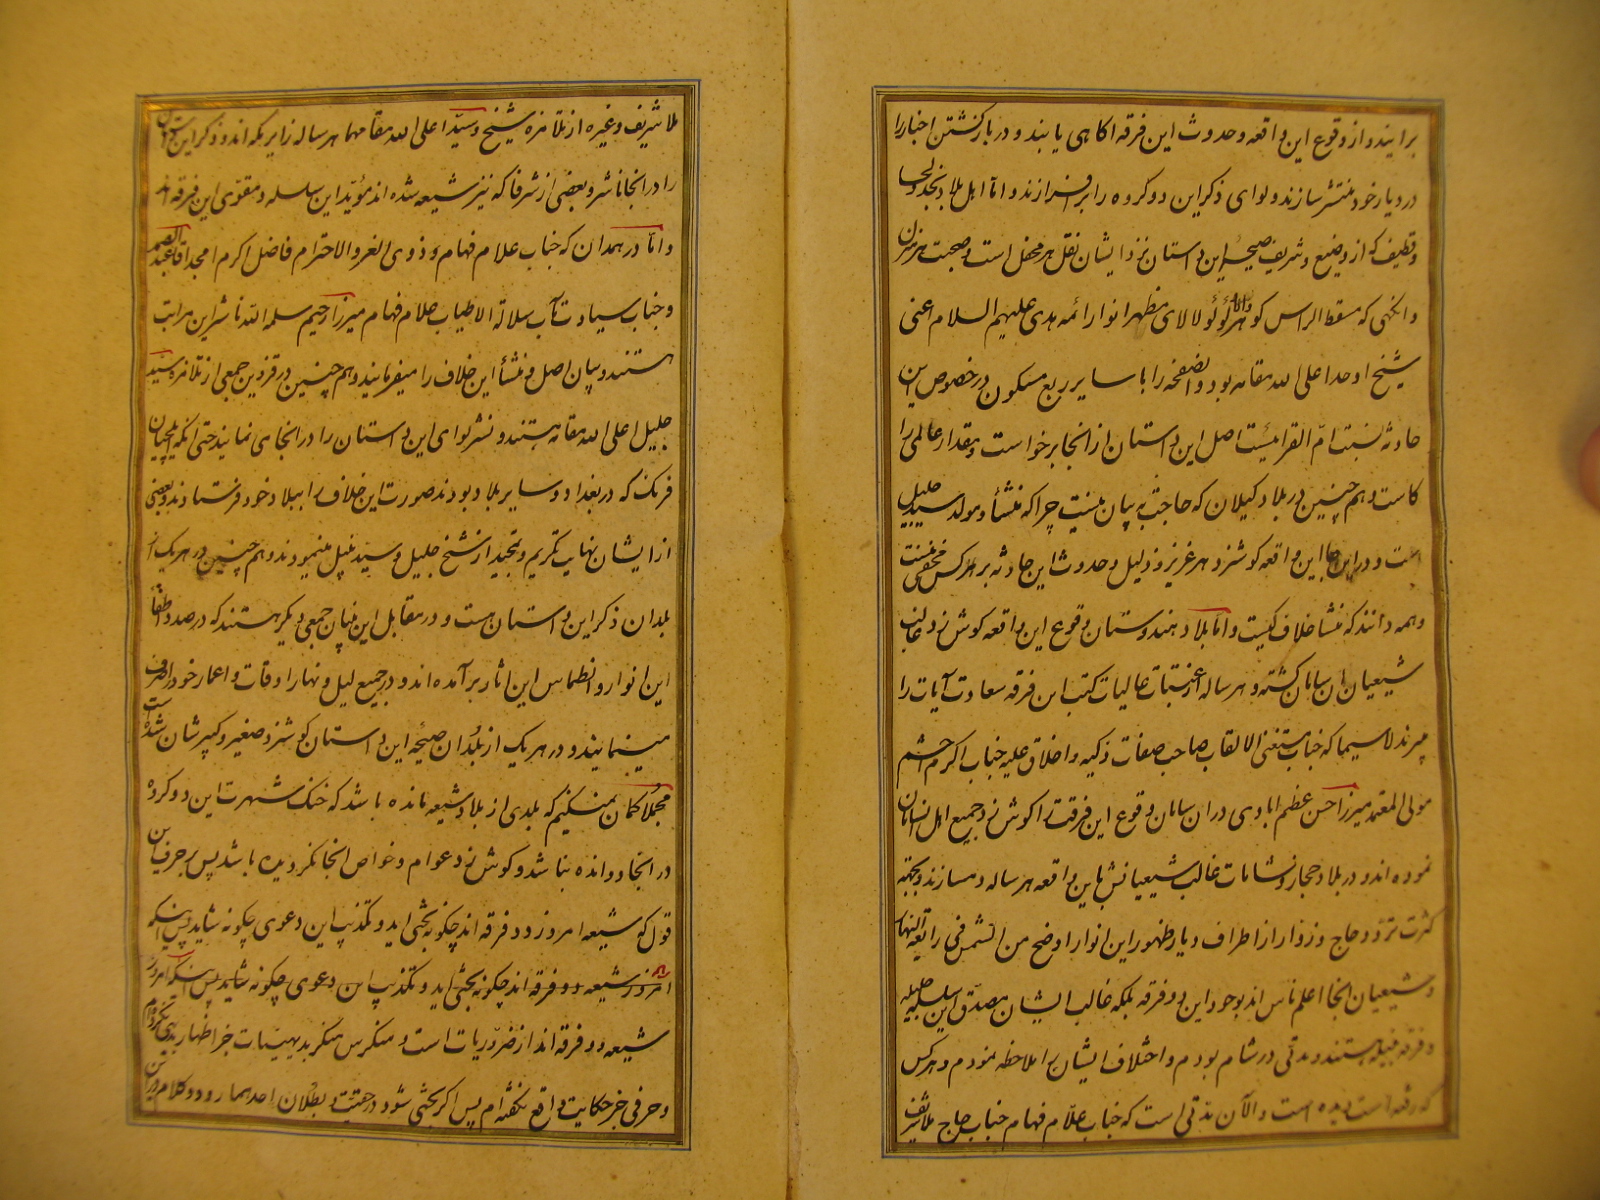 برایند و از وقوع این واقعه و حدوث این فرقه اکاهی یابند و در بازکشتن اخبار را
در دیار خود منتشر سازند و لوای ذکر این دو کروه را برافرازند و امّا اهل بلاد نجد و لحسا
و قطیف که از وضیع و شریف صیحهٔ این داستان نزد ایشان نقل هر محفل است و صحبت هر منزل
و انکهی که مسقط الراس کوهر والا و لؤلؤ لالای مظهر انوار ائمه هدی علیهم السلام اعنی
شیخ اوحد اعلی الله مقامه بود و الصفحه را با سایر ربع مسکون در خصوص این
حادثه نسبت امّ القرائیست اصل این داستان از انجا برخواست و بقدار عالمی را
کاست و هم چنین در بلاد کیلان که حاجت به بیان نیست چرا که منشأ و مولد سید جلیل
است و در این جا این واقعه کوشزد هر عزیز و ذلیل و حدوث این حادثه بر هر کس مخفی نیست
و همه دانند که منشأ خلاف کیست و امّا بلاد هندوستان وقوع این واقعه کوش زد غالب
شیعیان ان سامان کشته و هر ساله از عتبات عالیات کتب این فرقه سعادت آیات را
میبرند لاسیما که جناب مستغنی الالقاب صاحب صفات ذکیه و اخلاق علیه جناب اکرم احشم
مولی المعتمد میرزا حسن عظیم ابادی در ان سامان وقوع این فرقت را کوش زد جمیع اهل انسامان
نموده اند و در بلاد حجاز و شامات غالب شیعیانش باین واقعه هر ساله دمسازند و بجهة
کثرت تردّد حاج و زوار از اطراف و دیار ظهور این انوار اوضح من الشمس فی رابعة النهار
و شیعیان انجا اعلم ناس اند بوجود این دو فرقه بلکه غالب ایشان مصدّق این سلسله جلیله
و فرقه نبیله هستند و مدتی در شام بودم و اختلاف ایشان را ملاحظه نمودم و هر کس
که رفته است دیده است و الآن مدّتی است که جناب علّام فهام جناب حاج ملا شریف
ملا شریف و غیره از تلامزه شیخ و سیّد اعلی الله مقامهما هر ساله زایر مکه اند و ذکر این داستان
را در انجا ناشر و بعضی از شرفا که نیز شیعه شده اند مؤید این سلسله و مقوّی این فرقه اند
و امّا در همدان که جناب علام فهام و ذوی العز و الاحترام فاضل اکرم امجد اقا عبد الصمد
و جناب سیادت مآب سلالة الاطیاب علام فهام میرزا رحیم سلمه الله ناشر این مراتب
هستند و بیان اصل و منشأ این خلاف را میفرمایند و هم چنین در قزوین جمعی از تلامزه سید
جلیل اعلی الله مقامه هستند و نشر لوای این داستان را در انجا می نمایند حتی انکه ایلچیان
فرنک که در بغداد و سایر بلاد بودند صورت این خلاف را ببلاد خود فرستادند و بعضی
از ایشان نهایت تکریم و تمجید از شیخ جلیل و سیّد نبیل مینمودند و هم چنین در هر یک از
بلدان ذکر این داستان هست و در مقابل اینان جمعی دیکر هستند که در صدد اطفاء
این انوار و انطماس این اثار برآمده اند و در جمیع لیل و نهار اوقات و اعمار خود را صرف
مینمایند و در هر یک از بلدان صیحهٔ این داستان کوشزد صغیر و کبیرشان شده است
مجملاً کمان نمیکنیم که بلدی از بلاد شیعه مانده باشد که خنک شهرت این دو کروه
در انجا دوانده نباشد و کوش زد عوام و خواص انجا نکردیده باشد پس بر حرف این
قول که شیعه امروز دو فرقه اند چکونه بحثی اید و تکذیب این دعوی چکونه شاید پس اینکه
امروز شیعه دو فرقه اند چکونه بحثی اید و تکذیب این دعوی چکونه شاید پس اینکه امروز
شیعه دو فرقه اند از ضروریات است و منکرش منکر بدیهیات جز اظهار بدیهی نکرده ام
و حرفی جز حکایت واقع نکفته ام پس اکر بحثی شود در حقیّت و بطلان احدهما رود و کلام در این